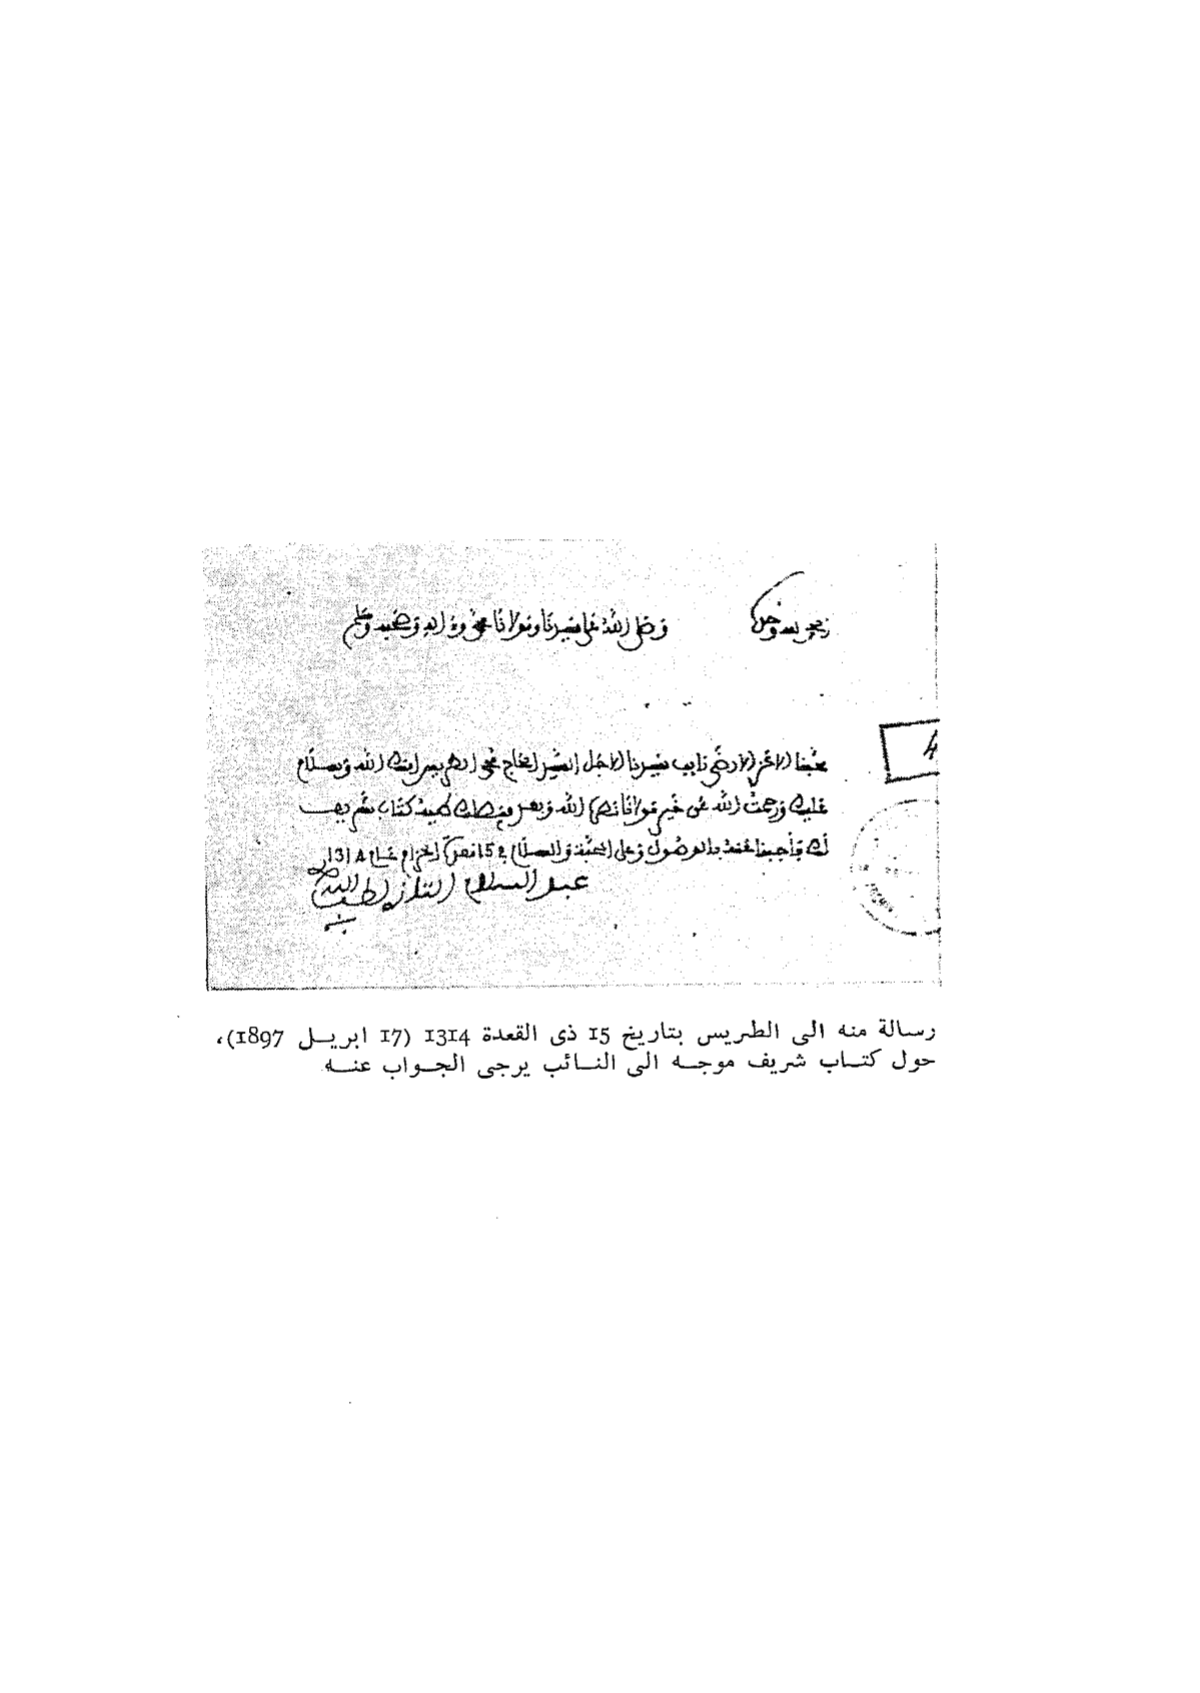 وصلى الله على سيدنا ومولانا محمد وءاله وصحبه وسلم
محبنا الاعز الارضى نايب سيدنا الاجل السيد الحاج محمد امنك الله وسلام
4
عليك ورحمت الله عن خير مولانا نصره الله وبعد كتاب شريف
لك فأجبنا عنه بالوصول وعلى المحبة والسلام في 15 الحرام عام 1314
عبد السلام التازي لطف الله به
رسالة منه الى الطريس بتاريخ 15 ذى القعدة 1314 (17 ابريل 1897)،
حول كتاب شريف موجه الى النائب يرجى الجواب عنه